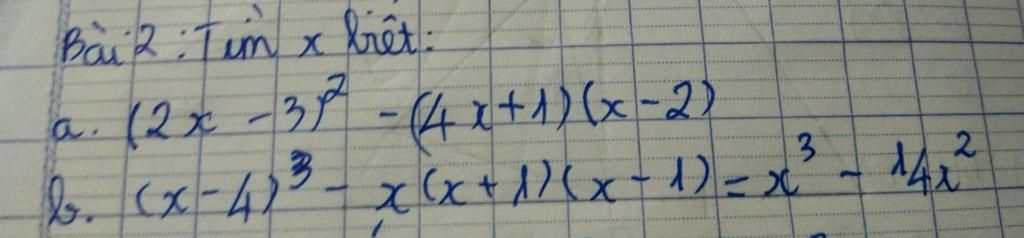 Bài 2: Tìm x biết:
a. (2x - 3)² - (4x + 1)(x - 2)
b. (x - 4)³ - x(x + 1)(x - 1) = x³ - 14x²